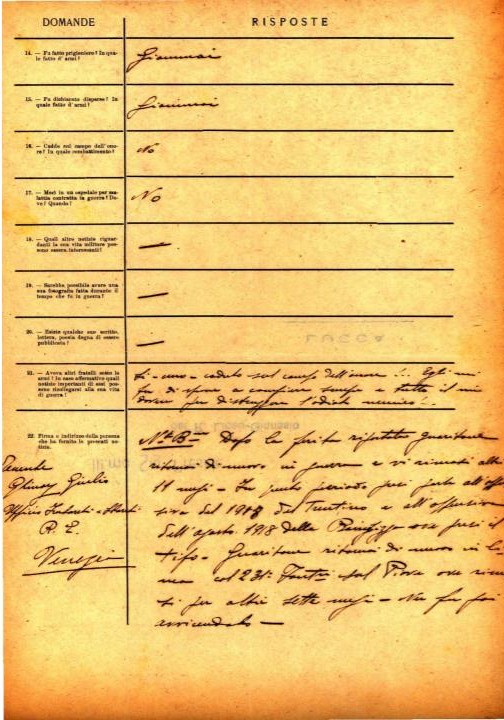 DOMANDE
RISPOSTE
14. — Fu fatto prigioniero? In qua-
le fatto d'armi?
Giammai
15. — Fu dichiarato disperso? In
quale fatto d'armi?
Giammai
16. — Cadde sul campo dell'ono-
re? In quale combattimento?
No
17. — Morì in un ospedale per ma-
lattia contratta in guerra? Do-
ve? Quando?
No
18. — Quali altre notizie riguar-
danti la sua vita militare pos-
sono essere interessanti?
—
19. — Sarebbe possibile avere una
sua fotografia fatta durante il
tempo che fu in guerra?
—
20. — Esiste qualche suo scritto,
lettera, poesia degna di essere
pubblicata?
—
LUCCA
21. — Aveva altri fratelli sotto le
armi? In caso affermativo quali
notizie importanti di essi pos-
sono ricollegarsi alla sua vita
di guerra?
Si - uno - caduto sul campo dell'onore!.. Egli
di spirò a compiere sempre e tutto il mio
dovere per distruggere l'odiato nemico!..
22. Firma e indirizzo della persona
che ha fornito le presenti no-
tizie.
Tenente
Giulio
Ufficio
R. E.
Venezia
Dopo la ferita riportata guaritone
ritornai di nuovo in guerra e vi rimasi altri
11 mesi - In questo periodo presi parte all'offen
siva del Trentino e all'offensiva
dell'agosto 1918 della ove presi
tifo - Guaritone ritornai di nuovo in li
nea col 231° Fant. sul Piave ove rima
si per altri sette mesi - Ne fui poi
avvicendato —